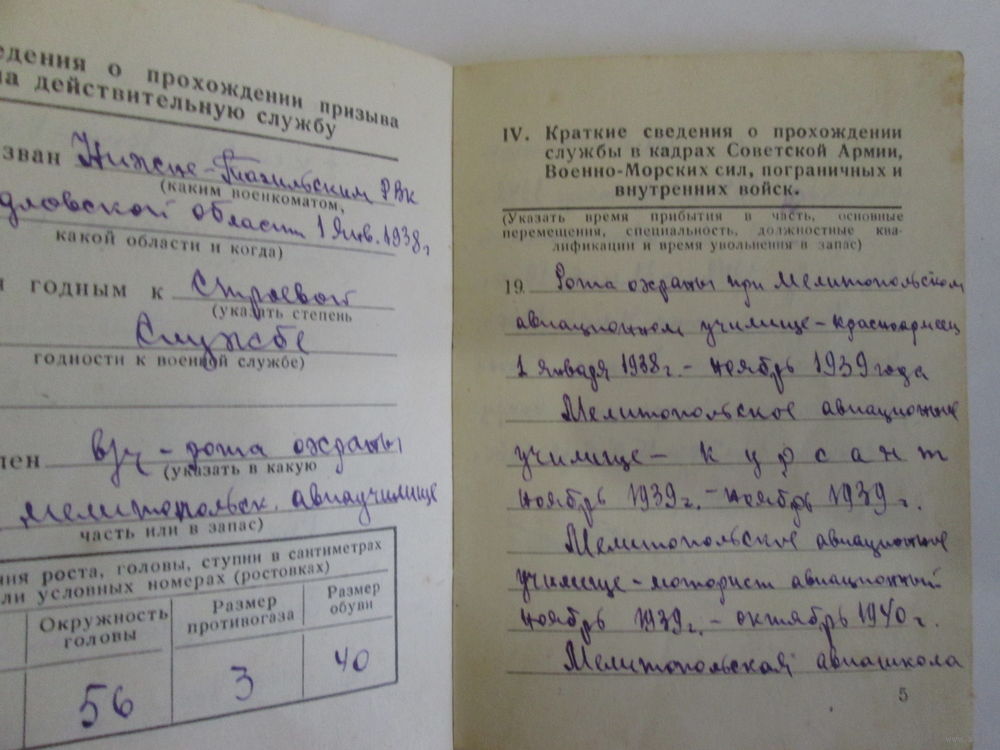 едения о прохождении призыва
на действительную службу
зван Нижне-Тагильским РВК
(каким военкоматом,
дловской области 1 Янв. 1938 г
какой области и когда)
годным к Строевой
(указать степень
Службе
годности к военной службе)
лен в/ч - рота охраны
(указать в какую
мелитопольск. авиаучилище
часть или в запас)
ния роста, головы, ступни в сантиметрах
ли условных номерах (ростовках)
Окружность головы
Размер противогаза
Размер обуви
56
3
40
IV. Краткие сведения о прохождении
службы в кадрах Советской Армии,
Военно-Морских сил, пограничных и
внутренних войск.
(Указать время прибытия в часть, основные
перемещения, специальность, должностные ква-
лификации и время увольнения в запас)
19 Рота охраны при Мелитопольском
авиационном училище - красноармеец
1 января 1938 г. - ноябрь 1939 года
Мелитопольское авиационное
училище - курсант
ноябрь 1939 г. - ноябрь 1939 г.
Мелитопольское авиационное
училище - моторист авиационный
ноябрь 1939 г. - октябрь 1940 г.
Мелитопольская авиашкола
5